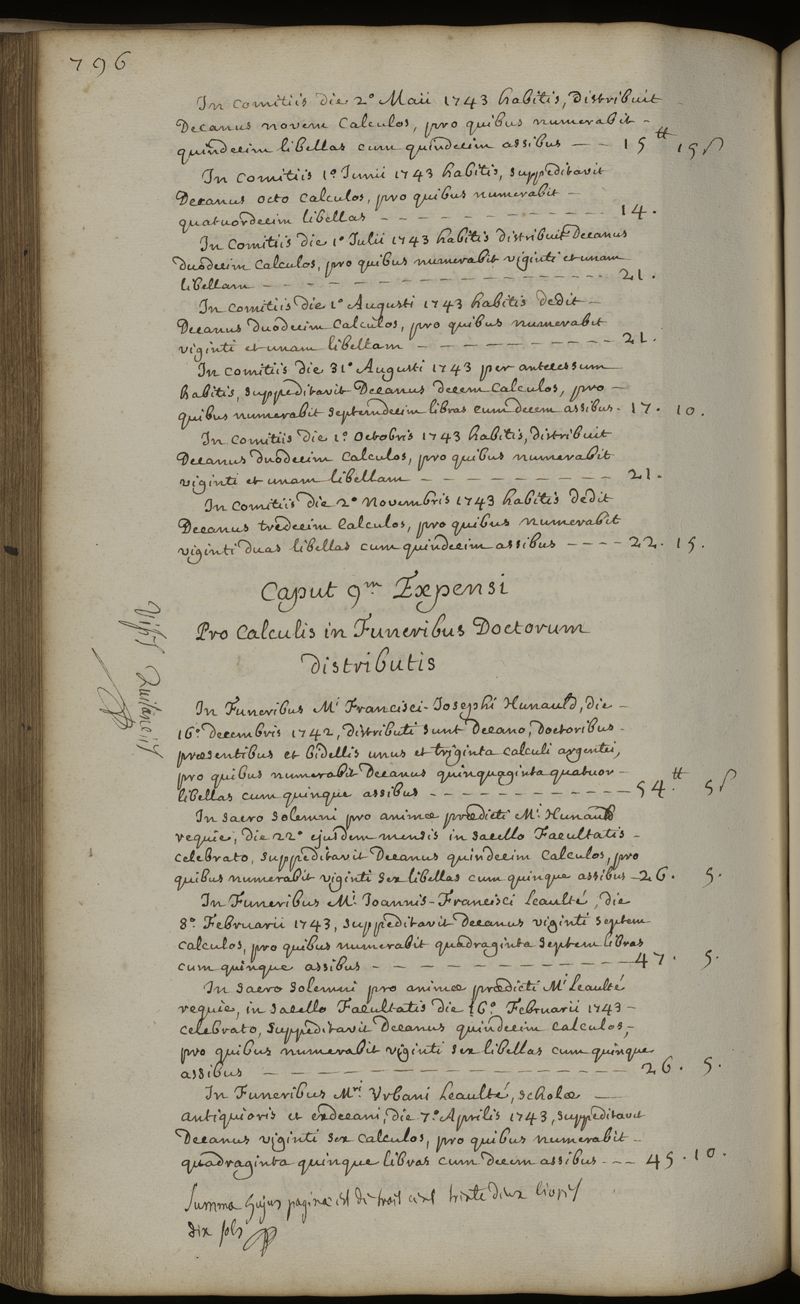 796
In Comitiis die 2° Maii 1743 habitis, distribuit
Decanus novem Calculos, pro quibus numerabit -
quindecim libellas cum quindecim assibus - - 15 ₶ 15 ſ
In Comitiis 1° Iunii 1743 habitis, suppeditavit
Decanus octo Calculos, pro quibus numerabit -
quatuordecim libellas - - - - - - - - - - 14.
In Comitiis die 1° Iulii 1743 habitis distribuit Decanus
duodecim Calculos, pro quibus numerabit viginti et unam
libellam - - - - - - - - - - - - - - - 21.
In Comitiis die 1° Augusti 1743 habitis dedit -
Decanus duodecim Calculos, pro quibus numerabit
viginti et unam libellam - - - - - - - - - 21.
In comitiis die 31° Augusti 1743 per antecessum
habitis, suppeditavit Decanus decem Calculos, pro -
quibus numerabit septemdecim libras cum decem assibus. 17. 10.
In Comitiis die 1° Octobris 1743 habitis, distribuit
Decanus duodecim Calculos, pro quibus numerabit
viginti et unam libellam - - - - - - - - 21.
In Comitiis die 2° Novembris 1743 habitis dedit
Decanus tredecim Calculos, pro quibus numerabit
viginti duas libellas cum quindecim assibus - - - - 22. 15.
Caput 9m Expensi
Pro Calculis in Funeribus Doctorum
distributis
In Funeribus Mi Francisci-Iosephi Hunauld, die -
16° decembris 1742, distributi sunt Decano, Doctoribus -
præsentibus et bidellis unus et triginta calculi argentei,
pro quibus numerabit Decanus quinquaginta quatuor -
libellas cum quinque assibus - - - - - - - - - - 54 ₶ 5 ſ
In Sacro Solemni pro animæ prædicti Mi Hunauld
requie, die 22° ejusdem mensis in sacello Facultatis -
Celebrato, suppeditavit Decanus quindecim Calculos, pro
quibus numerabit viginti sex libellas cum quinque assibus - 26. 5.
In Funeribus Mi Ioannis-Francisci Leaulté, die
8° Februarii 1743, suppeditavit Decanus viginti septem
calculos, pro quibus numerabit quadraginta septem libras
cum quinque assibus - - - - - - - - - - - 47. 5.
In Sacro Solemni pro animæ prædicti Mi Leaulté
requie, in Sacello Facultatis die 16° Februarii 1743 -
Celebrato, suppeditavit Decanus quindecim Calculos, -
pro quibus numerabit viginti sex libellas cum quinque
assibus - - - - - - - - - - - - - - 26. 5.
In Funeribus Mri Vrbani Leaulté, scholæ -
antiquioris et exdecani, die 7° Aprilis 1743, suppeditavit
Decanus viginti sex Calculos, pro quibus numerabit -
quadraginta quinque libras cum decem assibus - - - 45. 10.
Summa hujus paginæ est de trois cent trente deux livres
dix sols